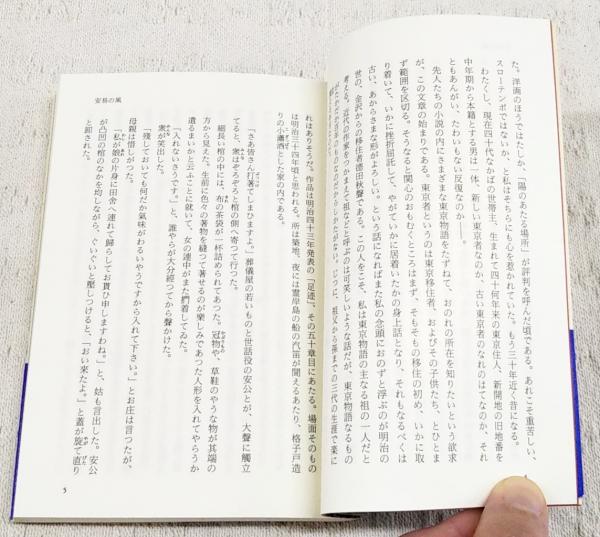 た。洋画のほうではたしか、「陽のあたる場所」が評判を呼んだ頃である。あれこそ重苦しい、
スローテンポではないか、と私はそちらにも心を惹かれていた。もう三十年近く昔になる。
わたくし、現在四十代なかばの世帯主、生まれて四十何年来の東京住人、新開地の旧地番を
中年期から本籍とする男は一体、新しい東京者なのか、古い東京者のなれのはてなのか、それ
ともあんがい、たわいもない反復なのか――。
先人たちの小説の内にさまざまな東京物語をたずねて、おのれの所在を知りたいという欲求
が、この文章の始まりである。東京者というのは東京移住者、およびその子供たち、とひとま
ず範囲を区切る。そうなると関心のおもむくところはまず、そもその移住の初め、いかに取
り着いて、いかに挫折屈託して、やがていかに居着いたかの身上話となり、それもなるべくは
古い、あからさまな形がよろしい。という話になればまた私の念頭におのずと浮ぶのが明治の
世の、金沢からの移住者徳田秋聲である。この人をこそ、私は東京物語の主なる祖の一人だと
考える。近代の作家をつかまえて祖などと呼ぶのは可笑しいような話だが、東京物語なるもの
じつに、祖父から孫までの三代の生涯で楽に
れはありそうだ。作品は明治四十三年発表の「足迹」、その五十章目にあたる。場面そのもの
は明治三十四年頃と思われる。所は築地、夜には霊岸島の船の汽笛が聞えるあたり、格子戸造
りの小瀟洒とした家の内である。
「さあ皆さん打著てしまひますよ。」葬儀屋の若いものと世話役の安公とが、大聲に觸立
てると、衆はぞろぞろと棺の側へ寄つて行つた。
細長い棺の中には、布の茶袋が一杯詰められてあつた。冠物や、草鞋のやうな物が其端の
方から見えた。生前に色々の著物を縫つて著せるのが樂しみであつた人形を入れてやらうか
遣るまいかと云ふことに就いて、女の連中がまた捫着してゐた。
「入れないさうです。」と、誰やらが大分經つてから聲かけた。
衆が笑出した。
「殘しておいても何だか氣味がわるいやうですから入れて下さい。」とお庄は言つたが、
母親は惜しがつた。
「私が娘の片身に田舍へ連れて歸らしてお貰ひ申しますわね。」と、姑も言出した。安公
が凸凹の棺のなかを均しながら、ぐいぐいと壓しつけると、「おい來たよ。」と蓋が旋て直り
と卸された。
安易の風
5